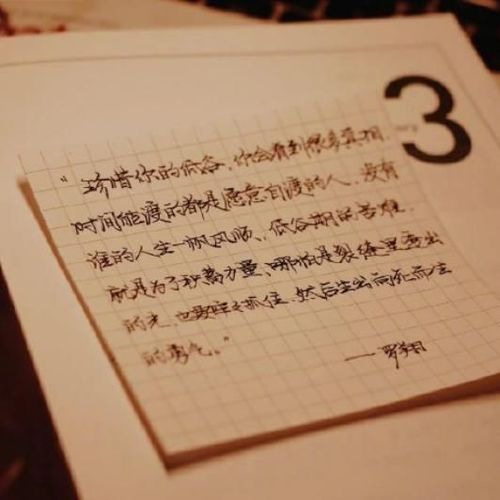 3
“珍惜你的低谷,你会看到很多真相.
时间能渡的都是愿意自渡的人,没有
谁的人生一帆风顺,低谷期的苦难.
就是为了积蓄力量,哪怕是裂缝里透出
的光,也要牢牢抓住,然后生出向死而生
的勇气。”
——罗翔